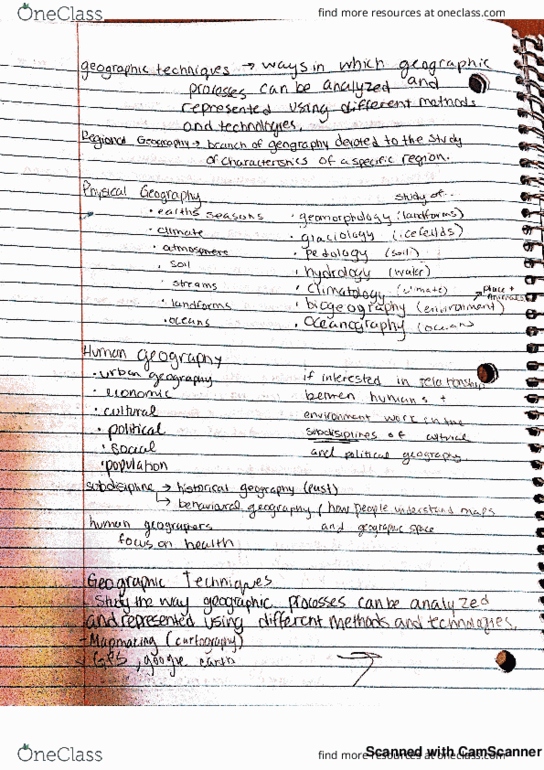 OneClass find more resources at oneclass.com
geographic techniques → ways in which geographic
processes can be analyzed and
represented using different methods
and technologies.
Regional Geography → branch of geography devoted to the study
of characteristics of a specific region.
Physical Geography study of..
• earths seasons • geomorphology (landforms)
• climate • glaciology (icefeilds)
• atmosphere • pedology (soil)
• soil • hydrology (water)
• streams • climatology (climate)
• landforms • biogeography (environment) → +
• oceans • Oceanography (oceans
Human geography
• urban geography if interested in relationship
• economic between humans +
• cultural environment work in the
• political subdisciplines of cultural
• social and political geography.
• population
subdisipline → historical geography (past)
↳ behavioral geography (how people understand maps
human geographers and geographic space
focus on health
Geographic Techniques
Study the way geographic processes can be analyzed
and represented using different methods and technologies.
- Mapmaking (cartography)
GPS, google earth
OneClass find more resources at oneclass.com
Scanned with CamScanner